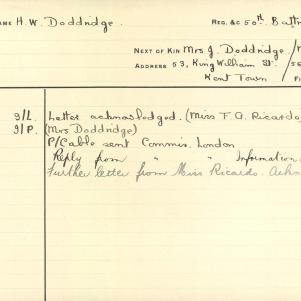 AME H. W. Doddridge. REG. &C 50th Batt
NEXT OF KIN Mrs J. Doddridge
ADDRESS 53, King William St.
Kent Town
9/L. Letter acknowledged. (Miss F. Q. Ricardo)
9/P. (Mrs Doddridge)
P/Cable sent Commis. London
Reply from " " Information
Further letter from Miss Ricardo. Ackn